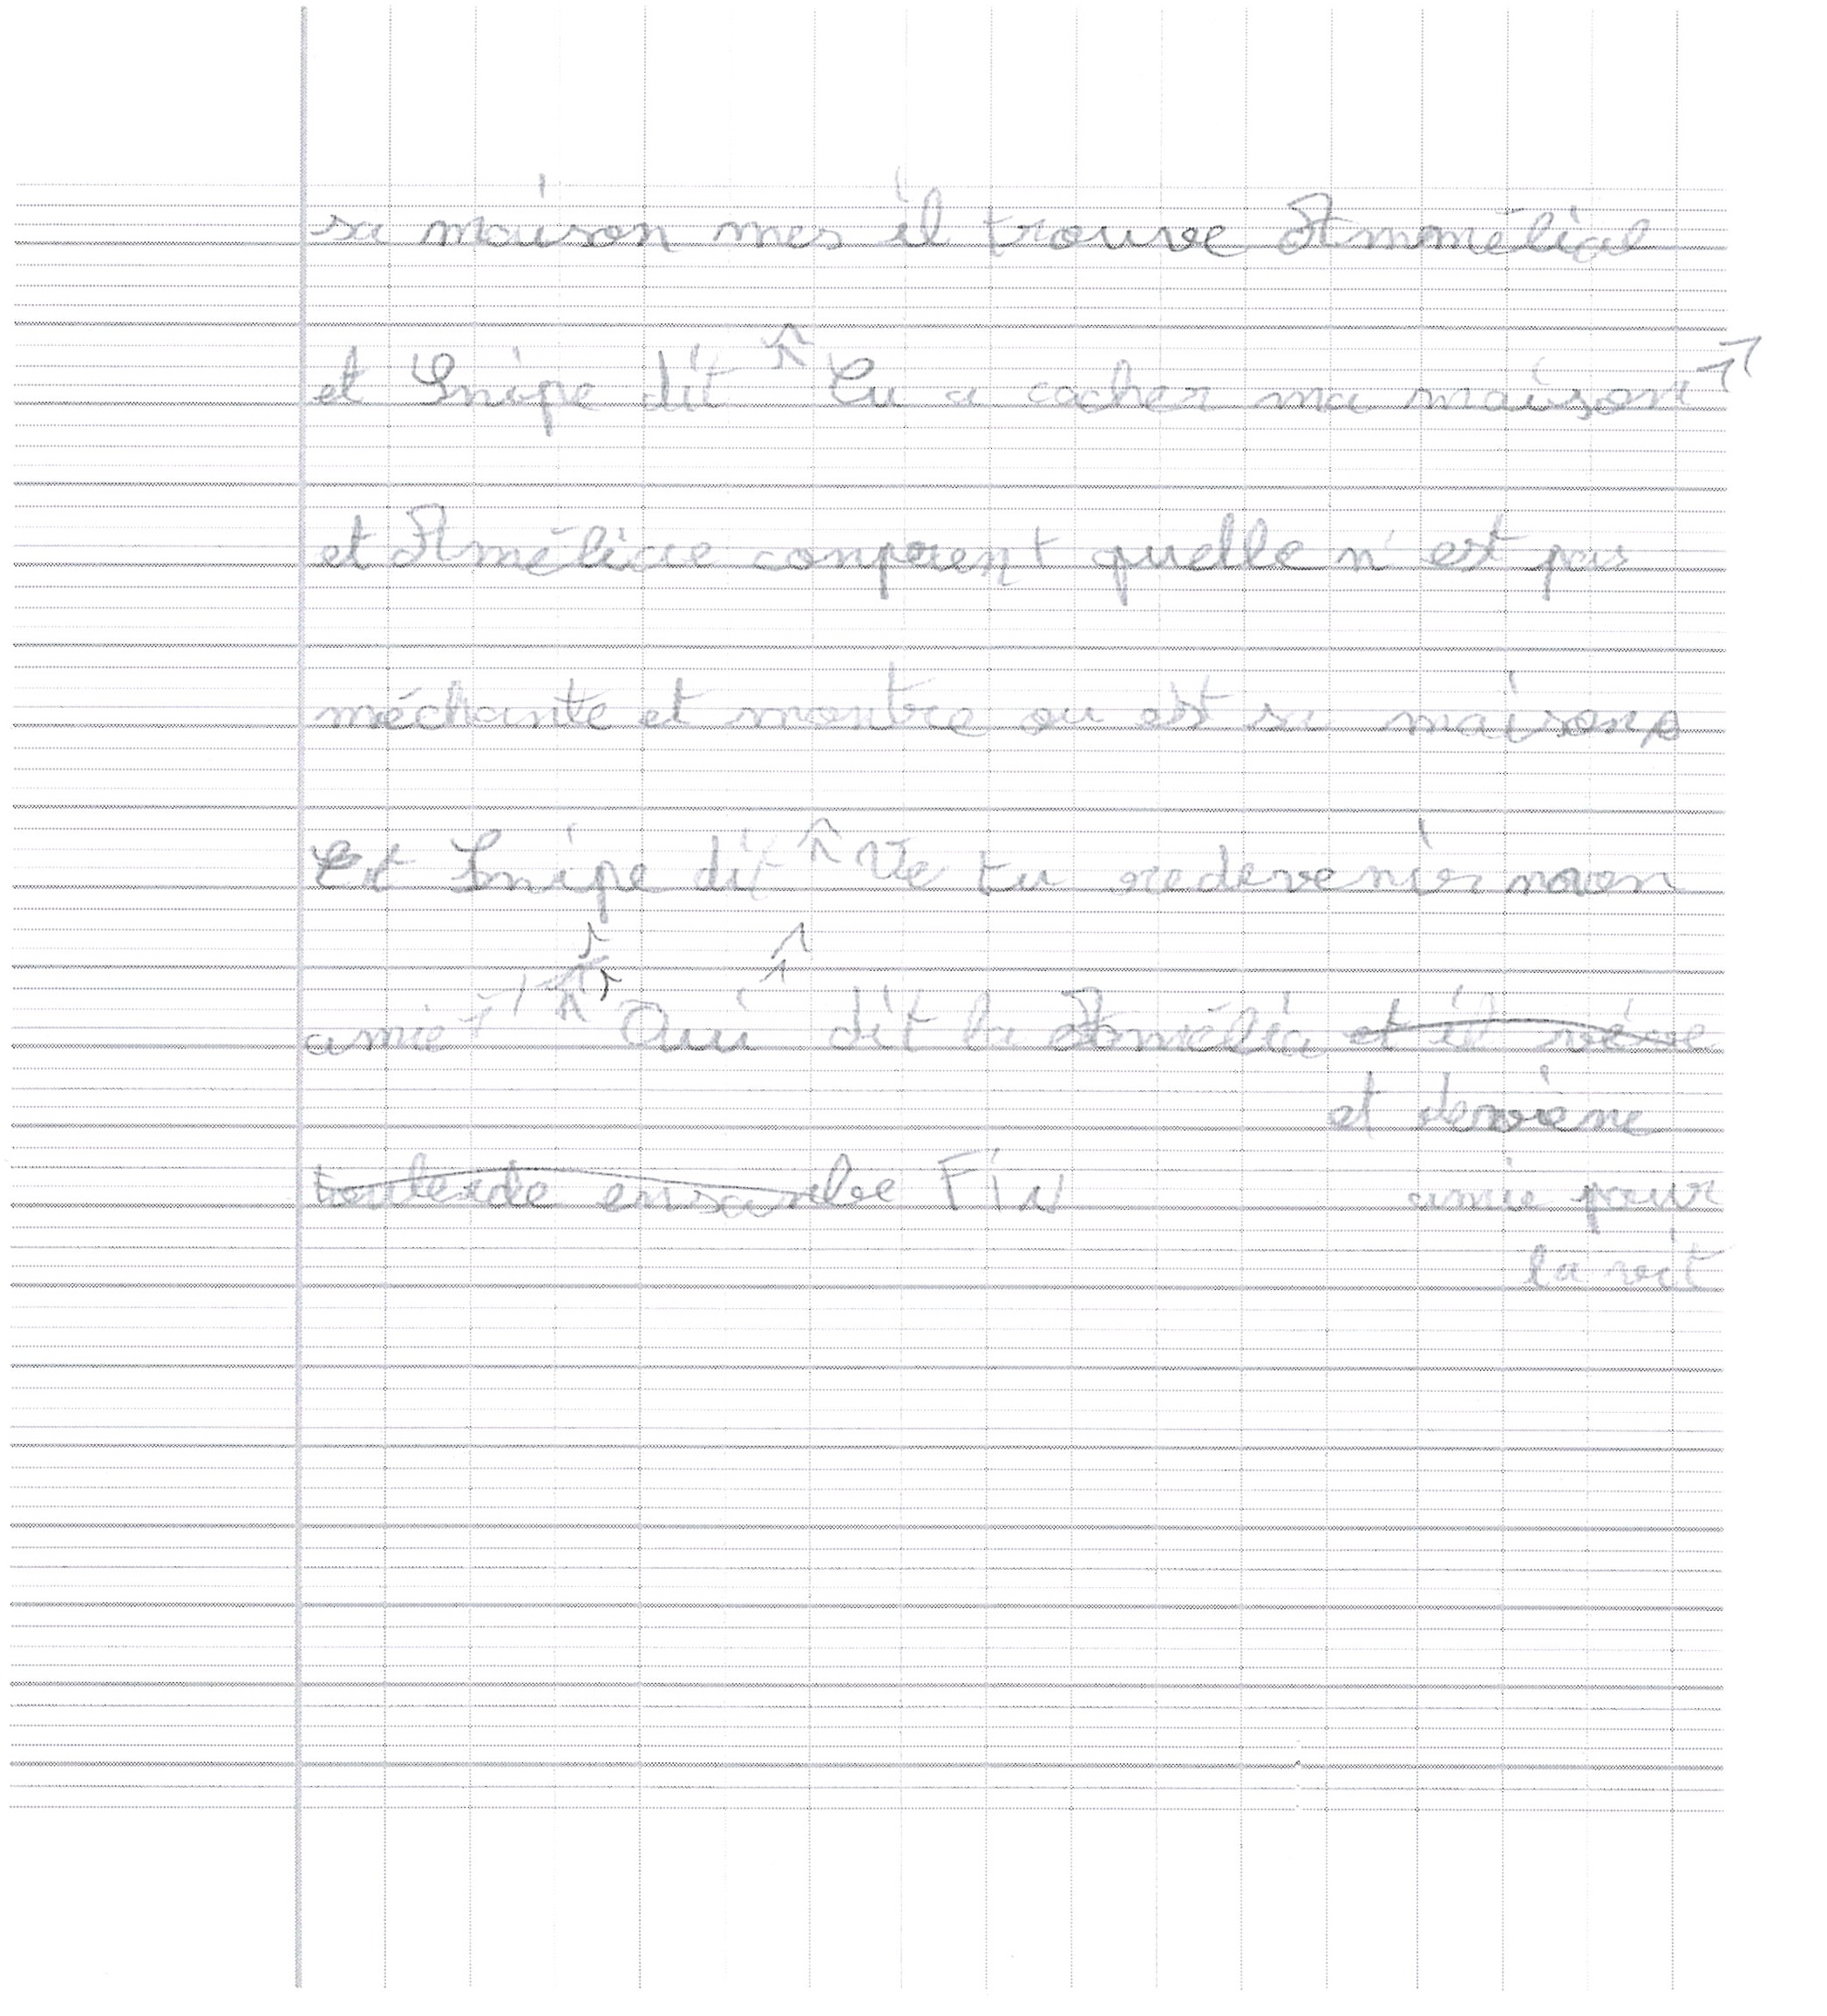 sa maison mes il trouve Ammélial
et Snipe dit " Tu a cacher ma maison "
et Améliae conprent quelle n'est pas
méchante et montre ou est sa maison
Et Snipe dit " Ve tu redevenir mon
amie " " Oui " dit la Amélia et il
et deviene
ensamble Fin
amie pour
la vit